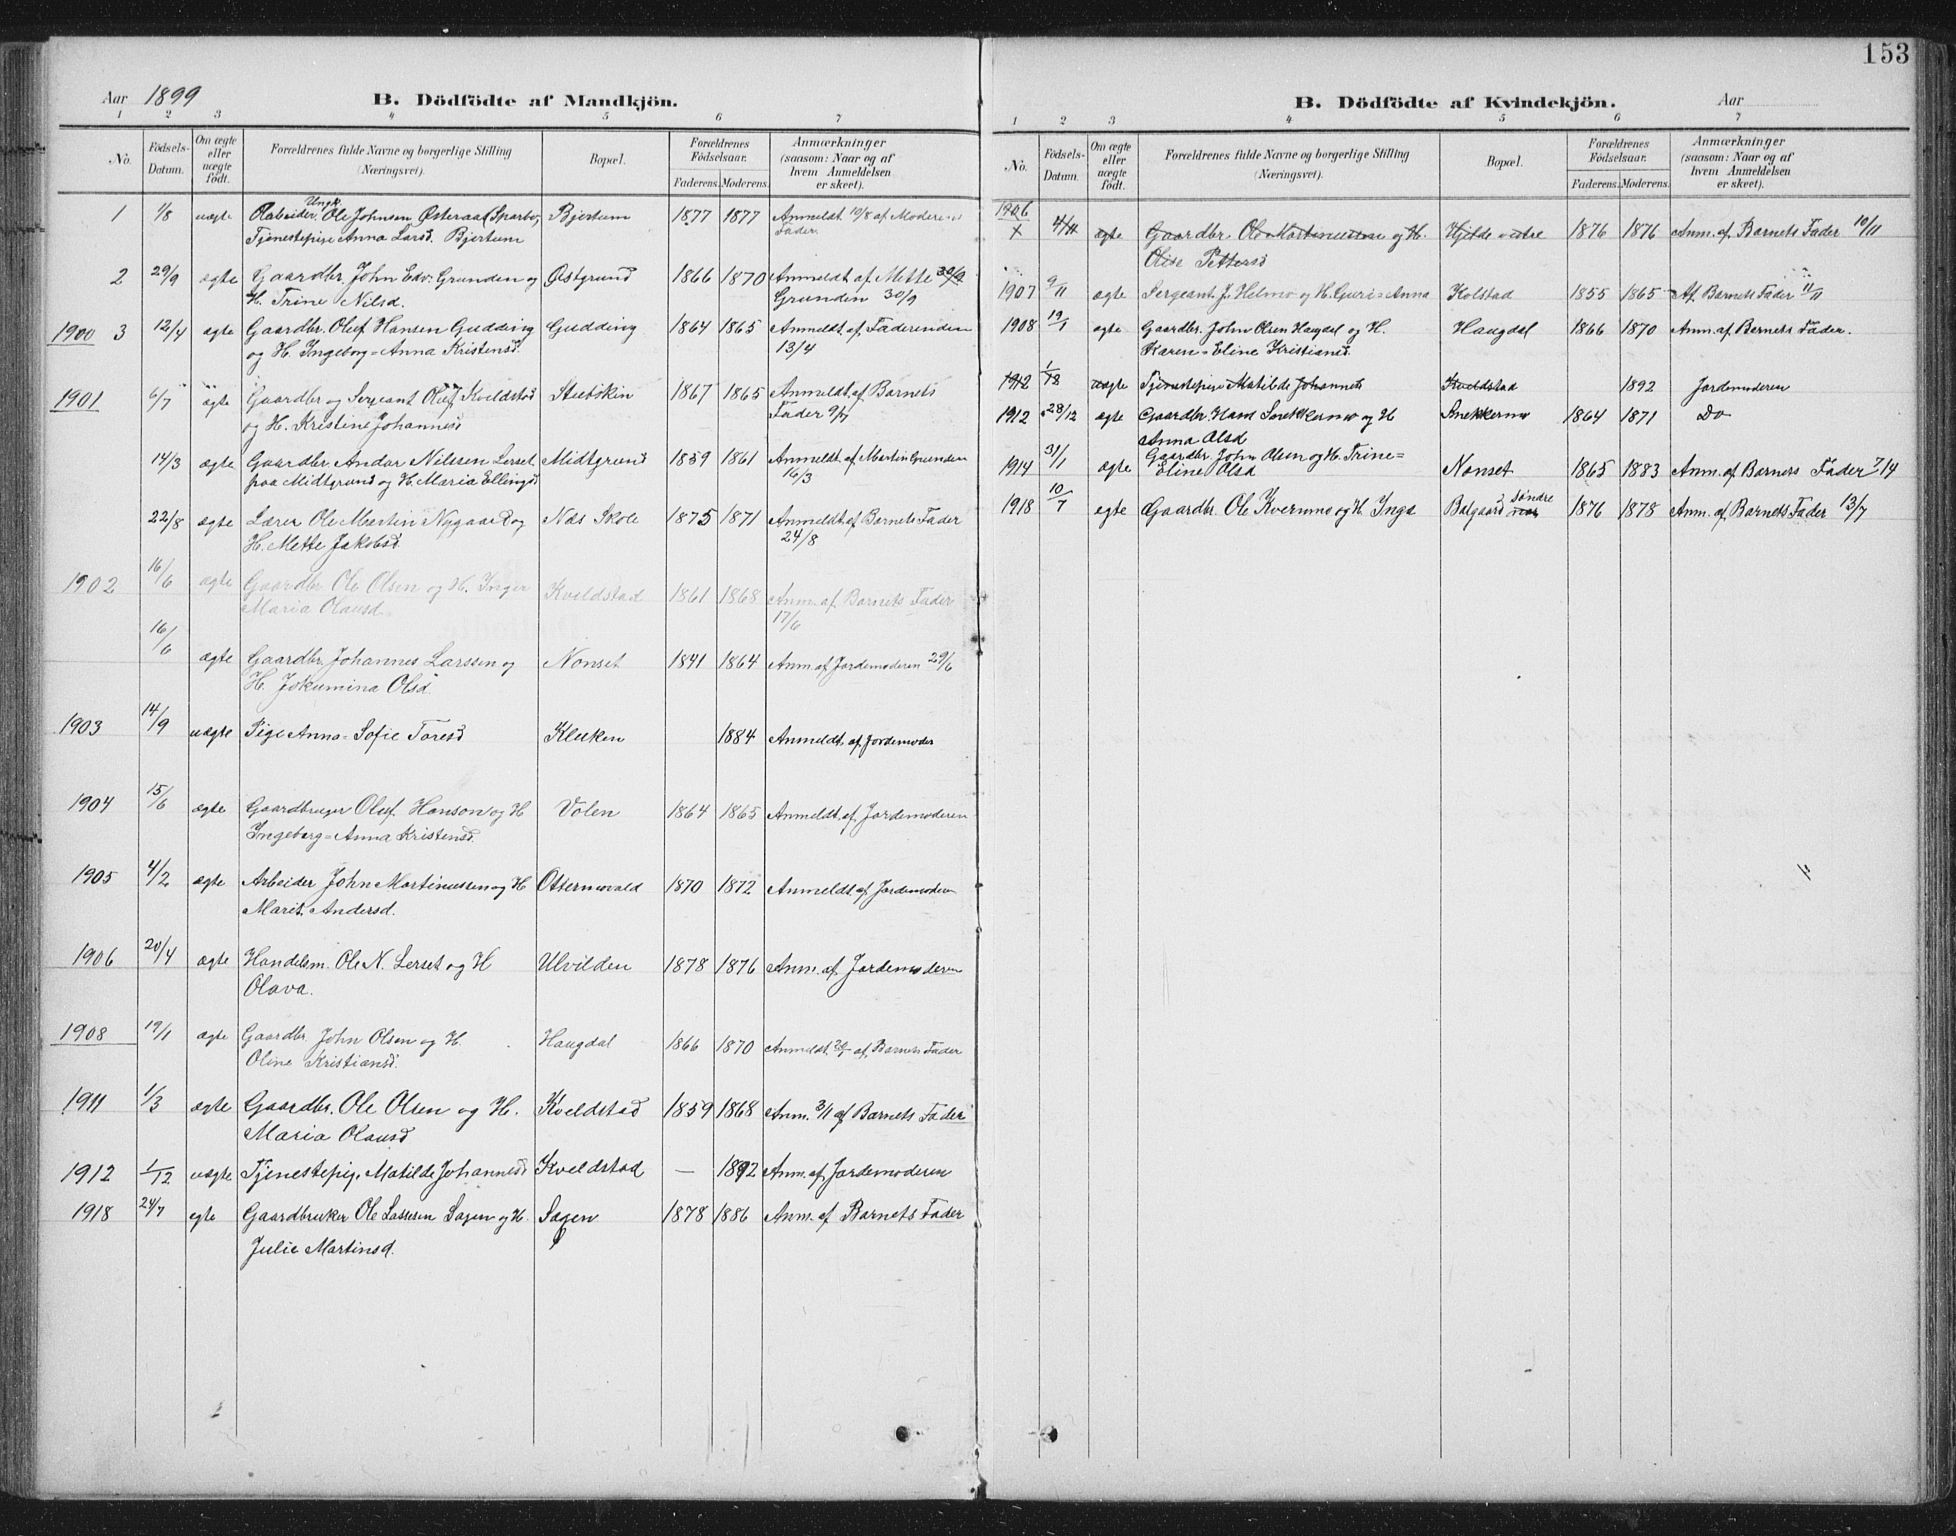 153
Aar 1899 B. Dödfödte af Mandkjön.
1 2 3 4 5 6 7
No. Födsels-Datum. Om ægte eller uægte födt. Forældrenes fulde Navne og borgerlige Stilling (Næringsvei). Bopæl. Forældrenes Födselsaar. Faderens. Moderens. Anmærkninger (saasom: Naar og af hvem Anmeldelsen er skeet).
1 1/8 uægte Ungk. Ole Johnsen Østeraas (Sparbo, Bjertum 1877 1877 Anmeldt 10/8 af Moderens
Tjenestepige Anna Larsd. Bjertum Fader.
2 29/9 ægte Gaardbr. John Edv. Grunden og Østgrund 1866 1870 Anmeldt af Mette 30/9
H. Trine Nilsd. Grunden 30/9
1900 3 12/4 ægte Gaardbr. Oluf Hansen Gudding Gudding 1864 1865 Anmeldt af Faderen den
og H. Ingeborg=Anna Kristensd. 13/4
1901 6/7 ægte Gaardbr. og Sergeant Oluf Kveldstad 1867 1865 Anmeldt af Barnets
og H. Kristine Johannesd Fader 9/7
14/3 ægte Gaardbr. Andor Nilssen Lerset Midtgrund 1859 1861 Anmeldt af Martin Grunden
paa Midtgrund og H. Maria Ellingsd 16/3
22/8 ægte Lærer Ole Martin Nygaard og Næs Skole 1875 1871 Anmeldt af Barnets Fader
H. Mette Jakobsd. 24/8
1902 16/6 ægte Gaardbr. Ole Olsen og H. Inger Kveldstad 1861 1868 Anm. af Barnets Fader
Maria Olausd. 17/6
16/6 ægte Gaardbr. Johannes Larssen og Nonset 1841 1864 Anm. af Jordemoderen 29/6
H. Jokumina Olsd
1903 14/9 uægte Pige Anna=Sofie Toresd Kluken 1884 Anmeldt af Jordemoder
1904 15/6 ægte Gaardbruger Oluf Hanson og H Volen 1864 1865 Anmeldt af Jordemoderen
Ingeborg=Anna Kristensd.
1905 4/2 ægte Arbeider John Martinussen og H Ottermovald 1870 1872 Anmeldt af Jordemoderen
Marit Andersd.
1906 20/4 ægte Handelsm. Ole N. Lerset og H Ulvilden 1878 1876 Anm. af Jordemoderen
Olava.
1908 19/1 ægte Gaardbr. John Olsen og H. Haugdal 1866 1870 Anmeldt 20/ af Barnets Fader
Oline Kristiansd.
1911 1/3 ægte Gaardbr. Ole Olsen og H. Kveldstad 1859 1868 Anm. 3/1 af Barnets Fader
Maria Olausd
1912 1/12 uægte Tjenestepig. Matilde Johannesd Kveldstad — 1892 Anm. af Jordemoderen
1918 24/7 egte Gaardbruker Ole Lassesen Sagen og H. Sagen 1878 1886 Anm. af Barnets Fader
Julie Martinsd.
B. Dödfödte af Kvindekjön. Aar
1 2 3 4 5 6 7
No. Födsels-Datum. Om ægte eller uægte födt. Forældrenes fulde Navne og borgerlige Stilling (Næringsvei). Bopæl. Forældrenes Födselsaar. Faderens. Moderens. Anmærkninger (saasom: Naar og af hvem Anmeldelsen er skeet).
1906
x 4/11 ægte Gaardbr. Ole Martinussen og H. Hjelde østre 1876 1876 Anm. af Barnets Fader 10/11
Olise Pettersd
1907 9/11 ægte Sergeant J. Helmo og H. Guri=Anna Kolstad 1855 1865 Af Barnets Fader 11/11
1908 19/1 ægte Gaardbr. John Olsen Haugdal og H. Haugdal 1866 1870 Anm. af Barnets Fader.
Karen=Eline Kristiansd.
1912 1/12 uægte Tjenestepige Matilde Johannesd Kveldstad 1892 Jordemoderen
1912 28/12 ægte Gaardbr. Hans Snekkermo og H Snekkermo 1864 1871 Do
Anna Olsd
1914 31/1 ægte Gaardbr. John Olsen og H. Trine= Nonset 1865 1883 Anm. af Barnets Fader 7/4
Eline Olsd
1918 10/7 egte Gaardbr. Ole Kvernmo og H Inga Balgaard søndre 1876 1878 Anm. af Barnets Fader 13/7